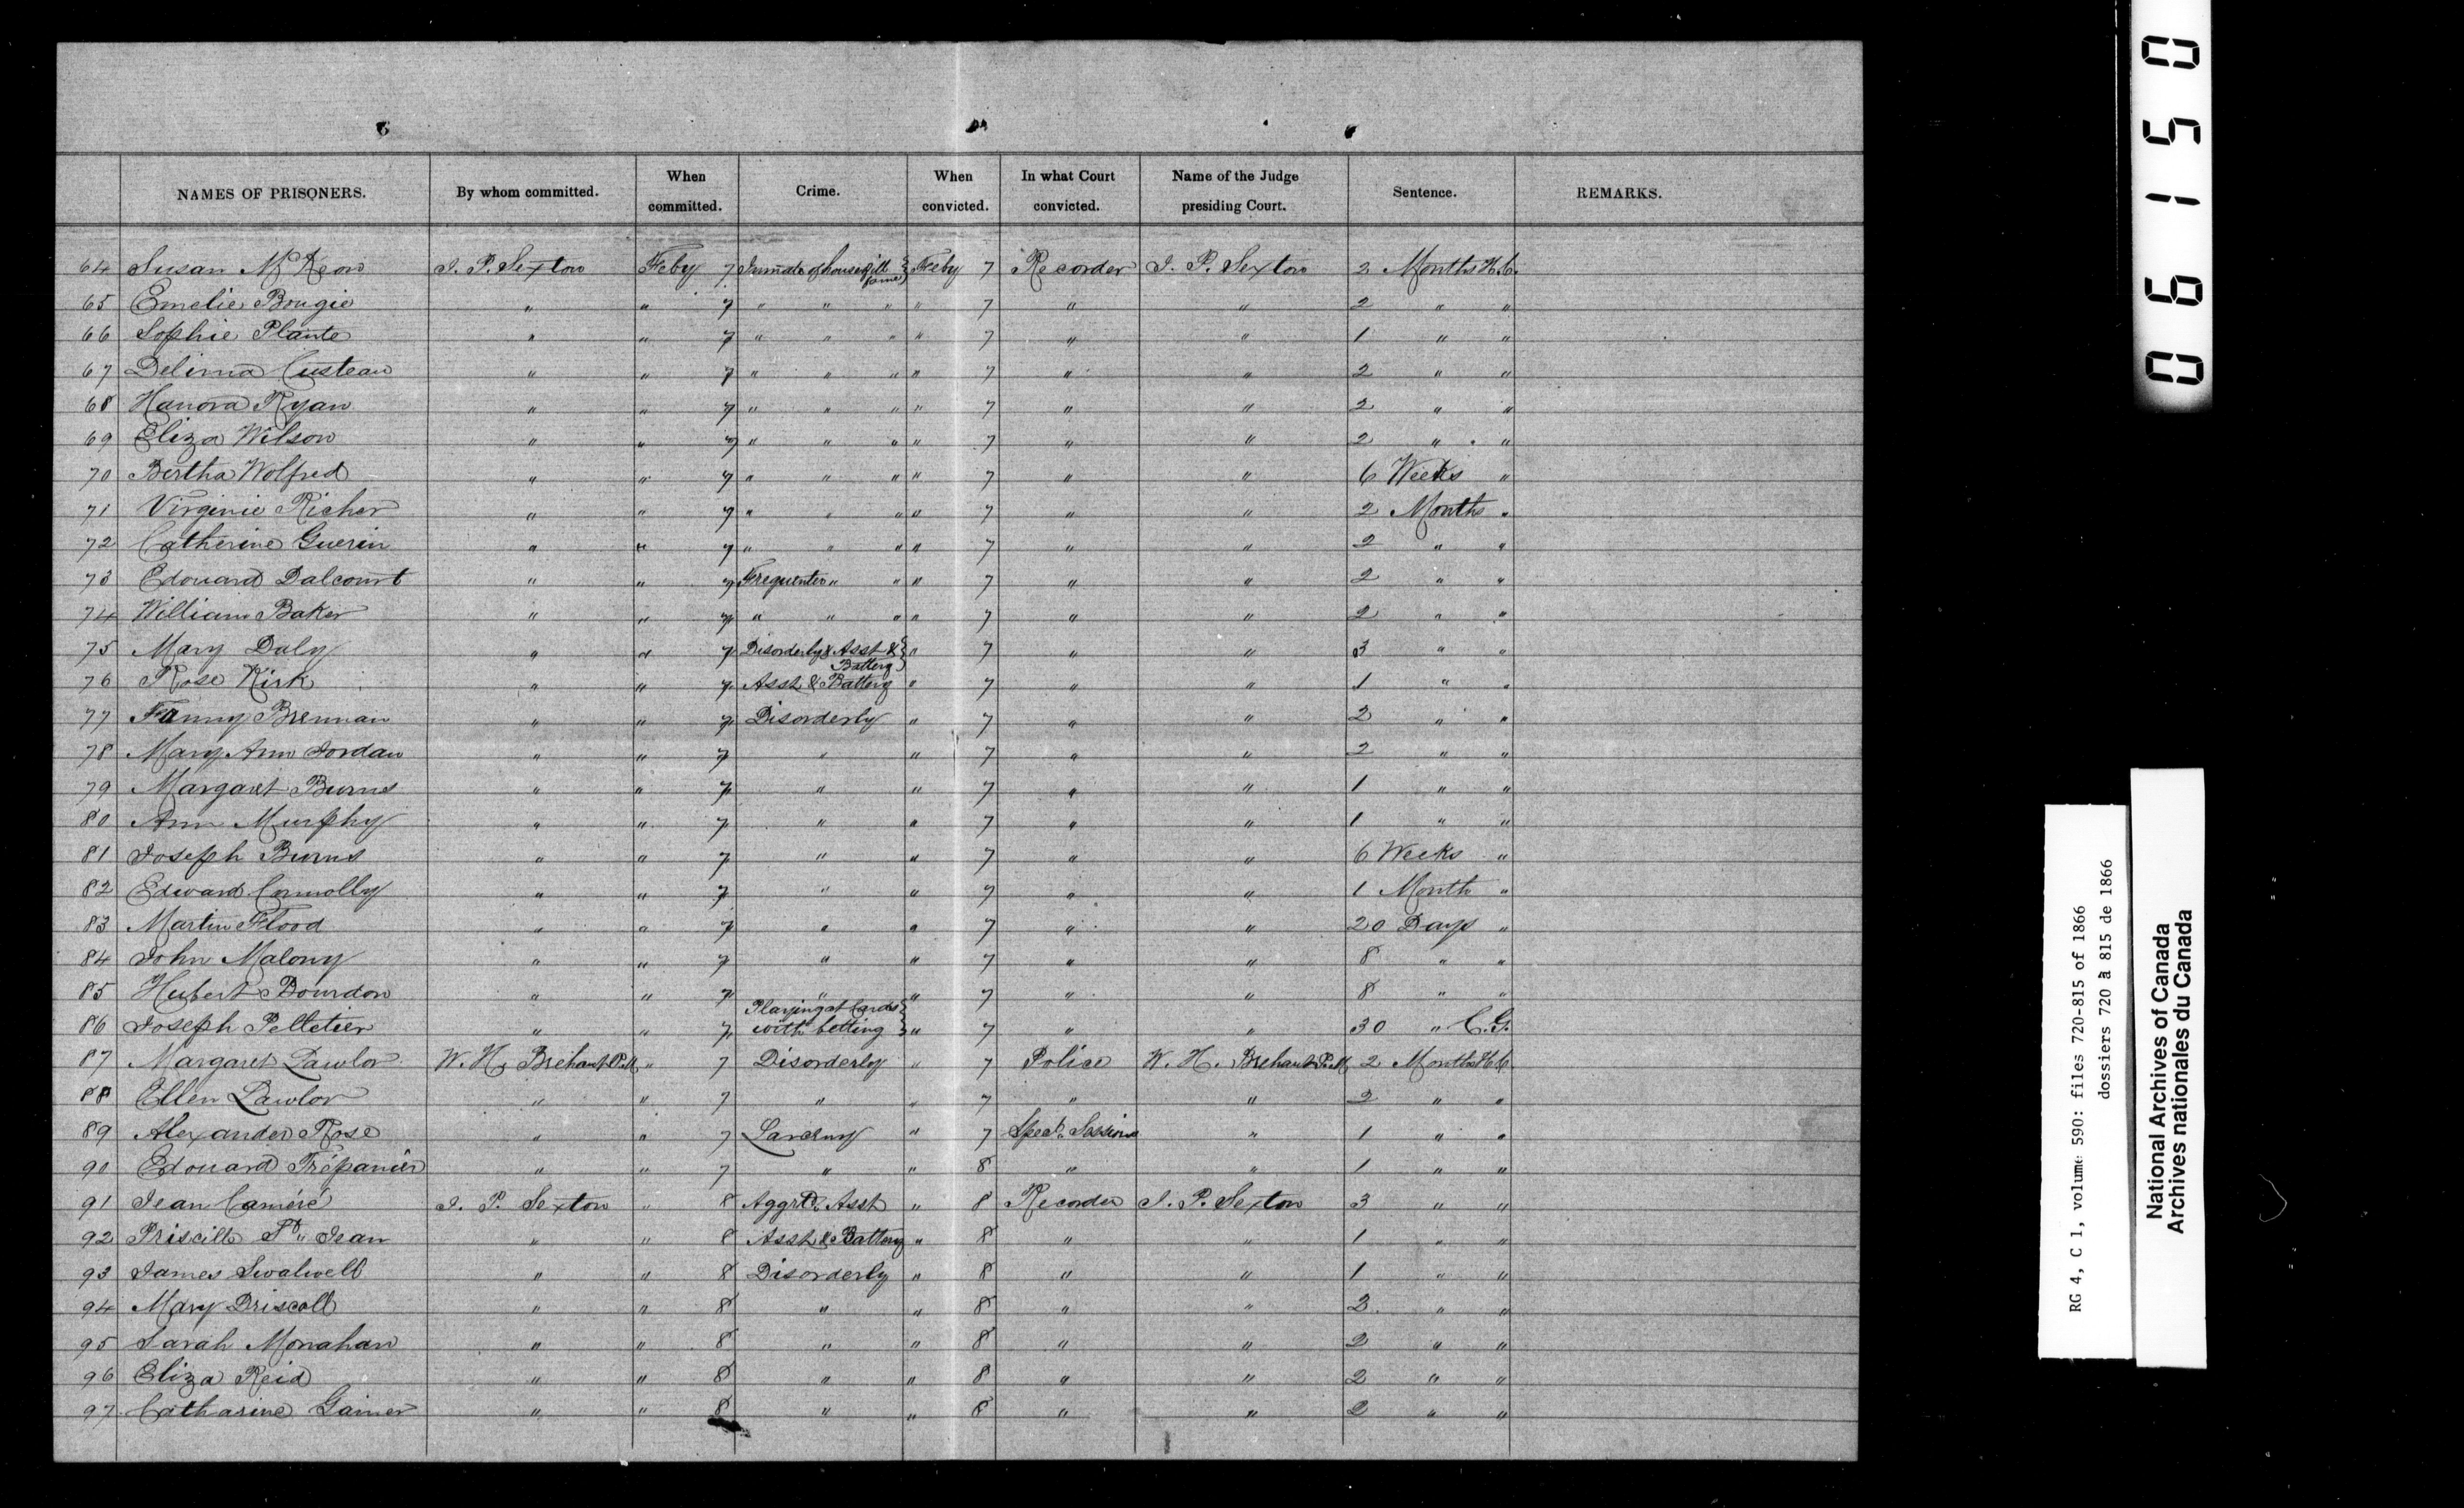 NAMES OF PRISONERS. By whom committed. When committed. Crime. When convicted. In what Court convicted. Name of the Judge presiding Court. Sentence. REMARKS.
64 Susan McKeon J. P. Sexton Feby 7 Inmate of house of ill fame } Feby 7 Recorder J. P. Sexton 2 Months H.L.
65 Emelie Bougie " " 7 " " " " 7 " " 2 " "
66 Sophie Plante " " 7 " " " " 7 " " 1 " "
67 Delima Custeau " " 7 " " " " 7 " " 2 " "
68 Hanora Ryan " " 7 " " " " 7 " " 2 " "
69 Eliza Wilson " " 7 " " " " 7 " " 2 " "
70 Bertha Wolfred " " 7 " " " " 7 " " 6 Weeks "
71 Virginie Richer " " 7 " " " " 7 " " 2 Months "
72 Catherine Guerin " " 7 " " " " 7 " " 2 " "
73 Edouard Dalcourt " " 7 Frequenter " " " 7 " " 2 " "
74 William Baker " " 7 " " " " 7 " " 2 " "
75 Mary Daly " " 7 Disorderly & Asst & Battery } " 7 " " 3 " "
76 Rose Kirk " " 7 Asst & Battery " 7 " " 1 " "
77 Fanny Brennan " " 7 Disorderly " 7 " " 2 " "
78 Mary Ann Jordan " " 7 " " 7 " " 2 " "
79 Margaret Burns " " 7 " " 7 " " 1 " "
80 Ann Murphy " " 7 " " 7 " " 1 " "
81 Joseph Burns " " 7 " " 7 " " 6 Weeks "
82 Edward Connolly " " 7 " " 7 " " 1 Month "
83 Martin Flood " " 7 " " 7 " " 20 Days "
84 John Malony " " 7 " " 7 " " 8 " "
85 Hubert Bourdon " " 7 " " 7 " " 8 " "
86 Joseph Pelletier " " 7 Playing at Cards with betting } " 7 " " 30 " C.G.
87 Margaret Lawlor W. H. Brehaut P.M. " 7 Disorderly " 7 Police W. H. Brehaut P.M. 2 Months H.L.
88 Ellen Lawlor " " 7 " " 7 " " 2 " "
89 Alexander Rose " " 7 Larceny " 7 Specl. Sessions " 1 " "
90 Edouard Trépanier " " 7 " " 8 " " 1 " "
91 Jean Caméré J. P. Sexton " 8 Aggrd. Asst " 8 Recorder J. P. Sexton 3 " "
92 Priscille St. Jean " " 8 Asst & Battery " 8 " " 1 " "
93 James Swalwell " " 8 Disorderly " 8 " " 1 " "
94 Mary Driscoll " " 8 " " 8 " " 2 " "
95 Sarah Monahan " " 8 " " 8 " " 2 " "
96 Eliza Reid " " 8 " " 8 " " 2 " "
97 Catharine Gainer " " 8 " " 8 " " 2 " "
06150
RG 4, C 1, volume 590: files 720-815 of 1866
dossiers 720 à 815 de 1866
National Archives of Canada
Archives nationales du Canada